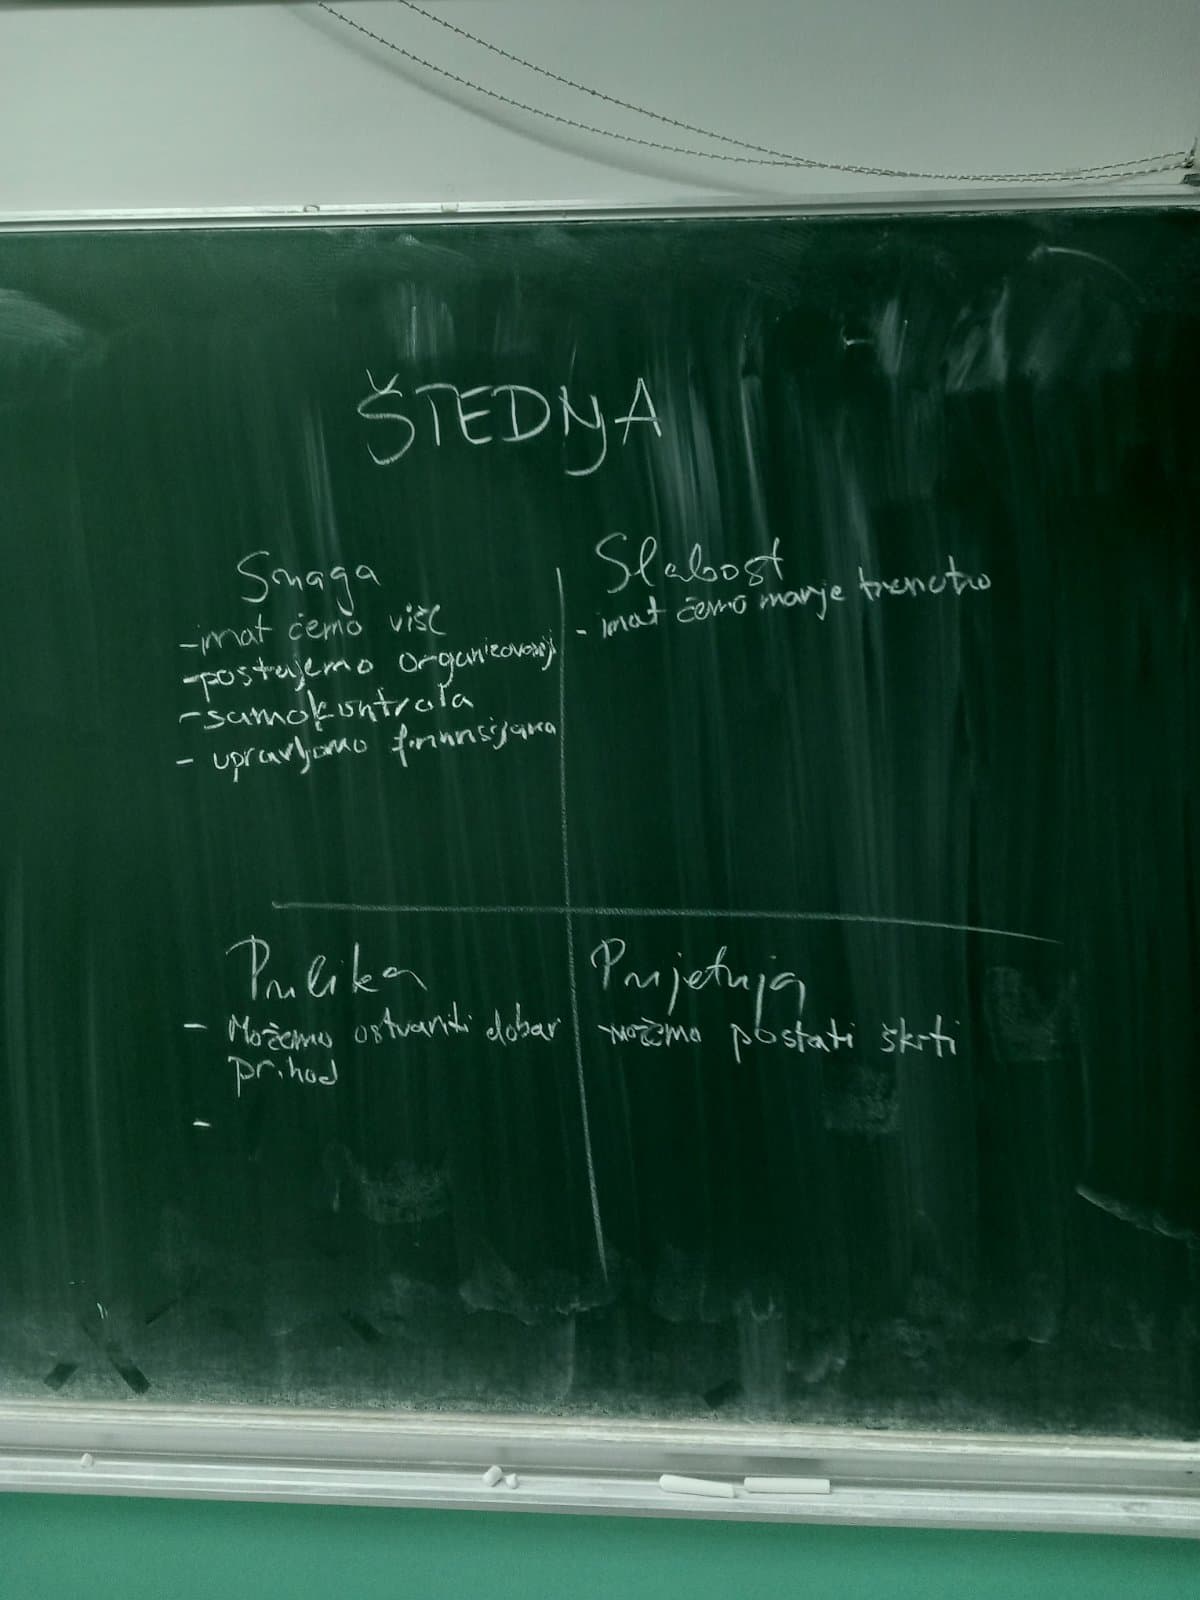 ŠTEDNJA
Snaga
- imat ćemo više
- postajemo organizovaniji
- samokontrola
- upravljamo finansijama
Slabost
- imat ćemo manje trenutno
Prilika
- Možemo ostvariti dobar
prihod
-
Prijetnja
- možemo postati škrti